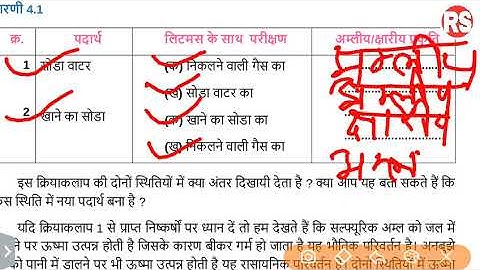 ारणी 4.1
RS
क्र. पदार्थ लिटमस के साथ परीक्षण अम्लीय/क्षारीय प्रकृति
1 सोडा वाटर (क) निकलने वाली गैस का अम्लीय
(ख) सोडा वाटर का अम्लीय
2 खाने का सोडा (क) खाने का सोडा का क्षारीय
(ख) निकलने वाली गैस का
इस क्रियाकलाप की दोनों स्थितियों में क्या अंतर दिखायी देता है ? क्या आप यह बता सकते हैं कि
कस स्थिति में नया पदार्थ बना है ?
यदि क्रियाकलाप 1 से प्राप्त निष्कर्षों पर ध्यान दें तो हम देखते हैं कि सल्फ्यूरिक अम्ल को जल में
ने पर ऊष्मा उत्पन्न होती है जिसके कारण बीकर गर्म हो जाता है यह भौतिक परिवर्तन है। अनबुझे
को पानी में डालने पर भी ऊष्मा उत्पन्न होती है यह रासायनिक परिवर्तन है। दोनों स्थितियों में ऊष्मा